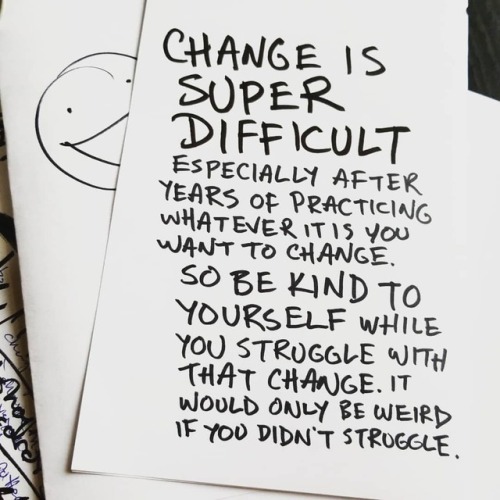 CHANGE IS
SUPER
DIFFICULT
ESPECIALLY AFTER
YEARS OF PRACTICING
WHATEVER IT IS YOU
WANT TO CHANGE.
SO BE KIND TO
YOURSELF WHILE
YOU STRUGGLE WITH
THAT CHANGE. IT
WOULD ONLY BE WEIRD
IF YOU DIDN'T STRUGGLE.